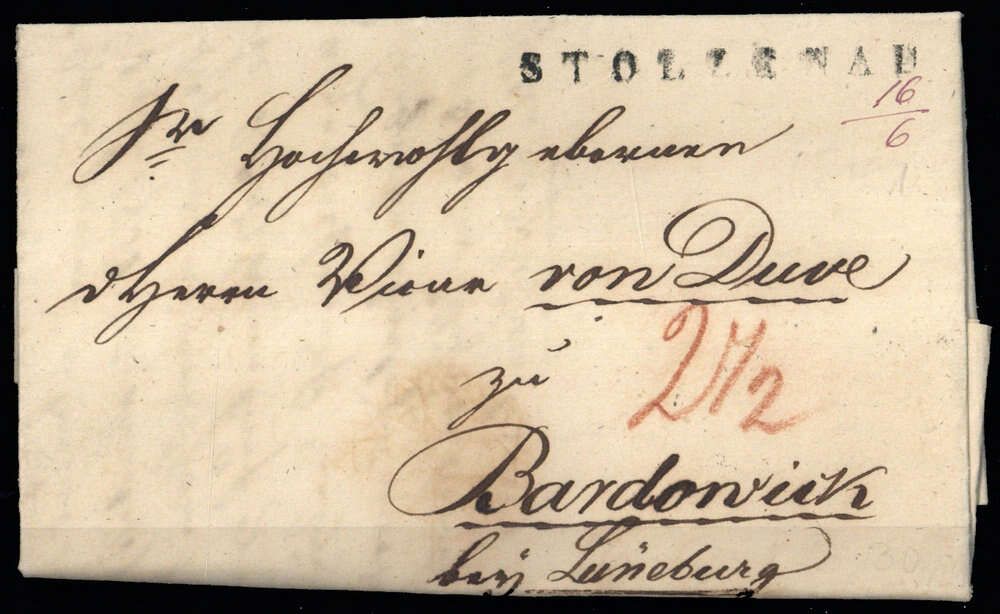 STOLZENAU
16
6
Sr Hochwohlgebornen
dHerrn Vicar von Duve
zu
2 1/2
Bardowick
bey Lüneburg